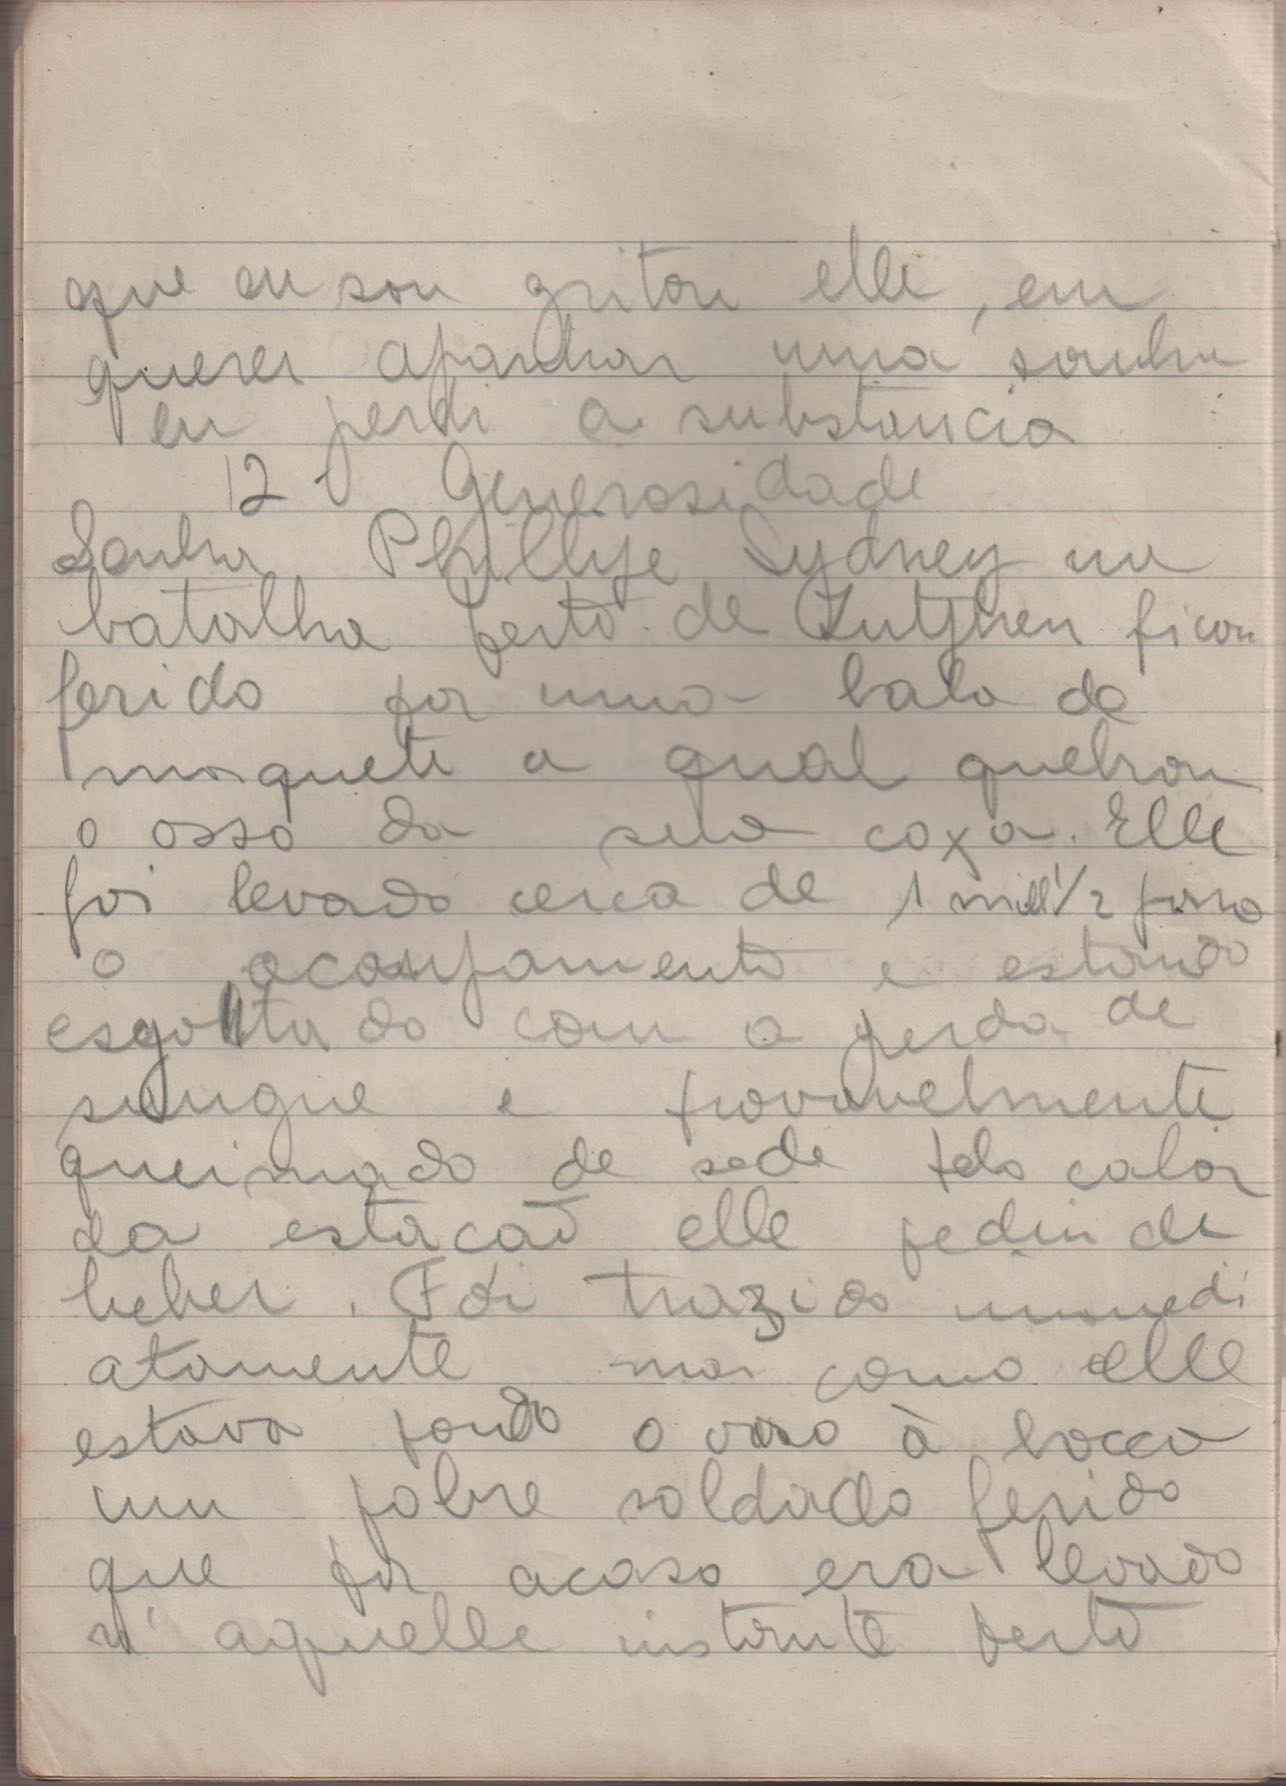 que eu sou gritou elle, em
querer apanhar uma sombra
eu perdi a substancia
12 Generosidade
Phillipe Sydney na
batalha perto de Zutphen ficou
ferido por uma bala de
mosquete a qual quebrou
o osso da sua coxa. Elle
foi levado cerca de 1 mill 1/2 para
o acampamento e estando
esgottado com a perda de
sangue e provavelmente
queimado de sede pelo calor
da estacão elle pediu de
beber. Foi trazido immedi
atamente mas como elle
estava pondo o vaso à bocca
um pobre soldado ferido
que por acaso era levado
n'aquelle instante perto